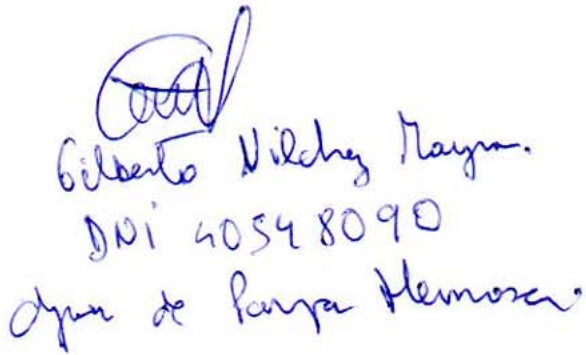 Gilberto Vilchez Mayn.
DNI 40548090
de Pampa Hermosa.